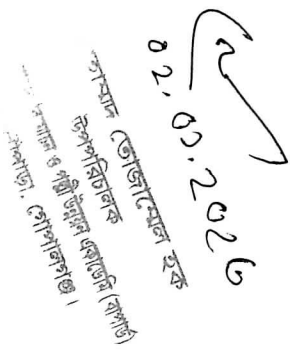 ০২.০১.২০২৬
তোজাম্মেল হক
উপপরিচালক
ও পল্লী উন্নয়ন একাডেমি (বাপার্ড)
গোপালগঞ্জ।